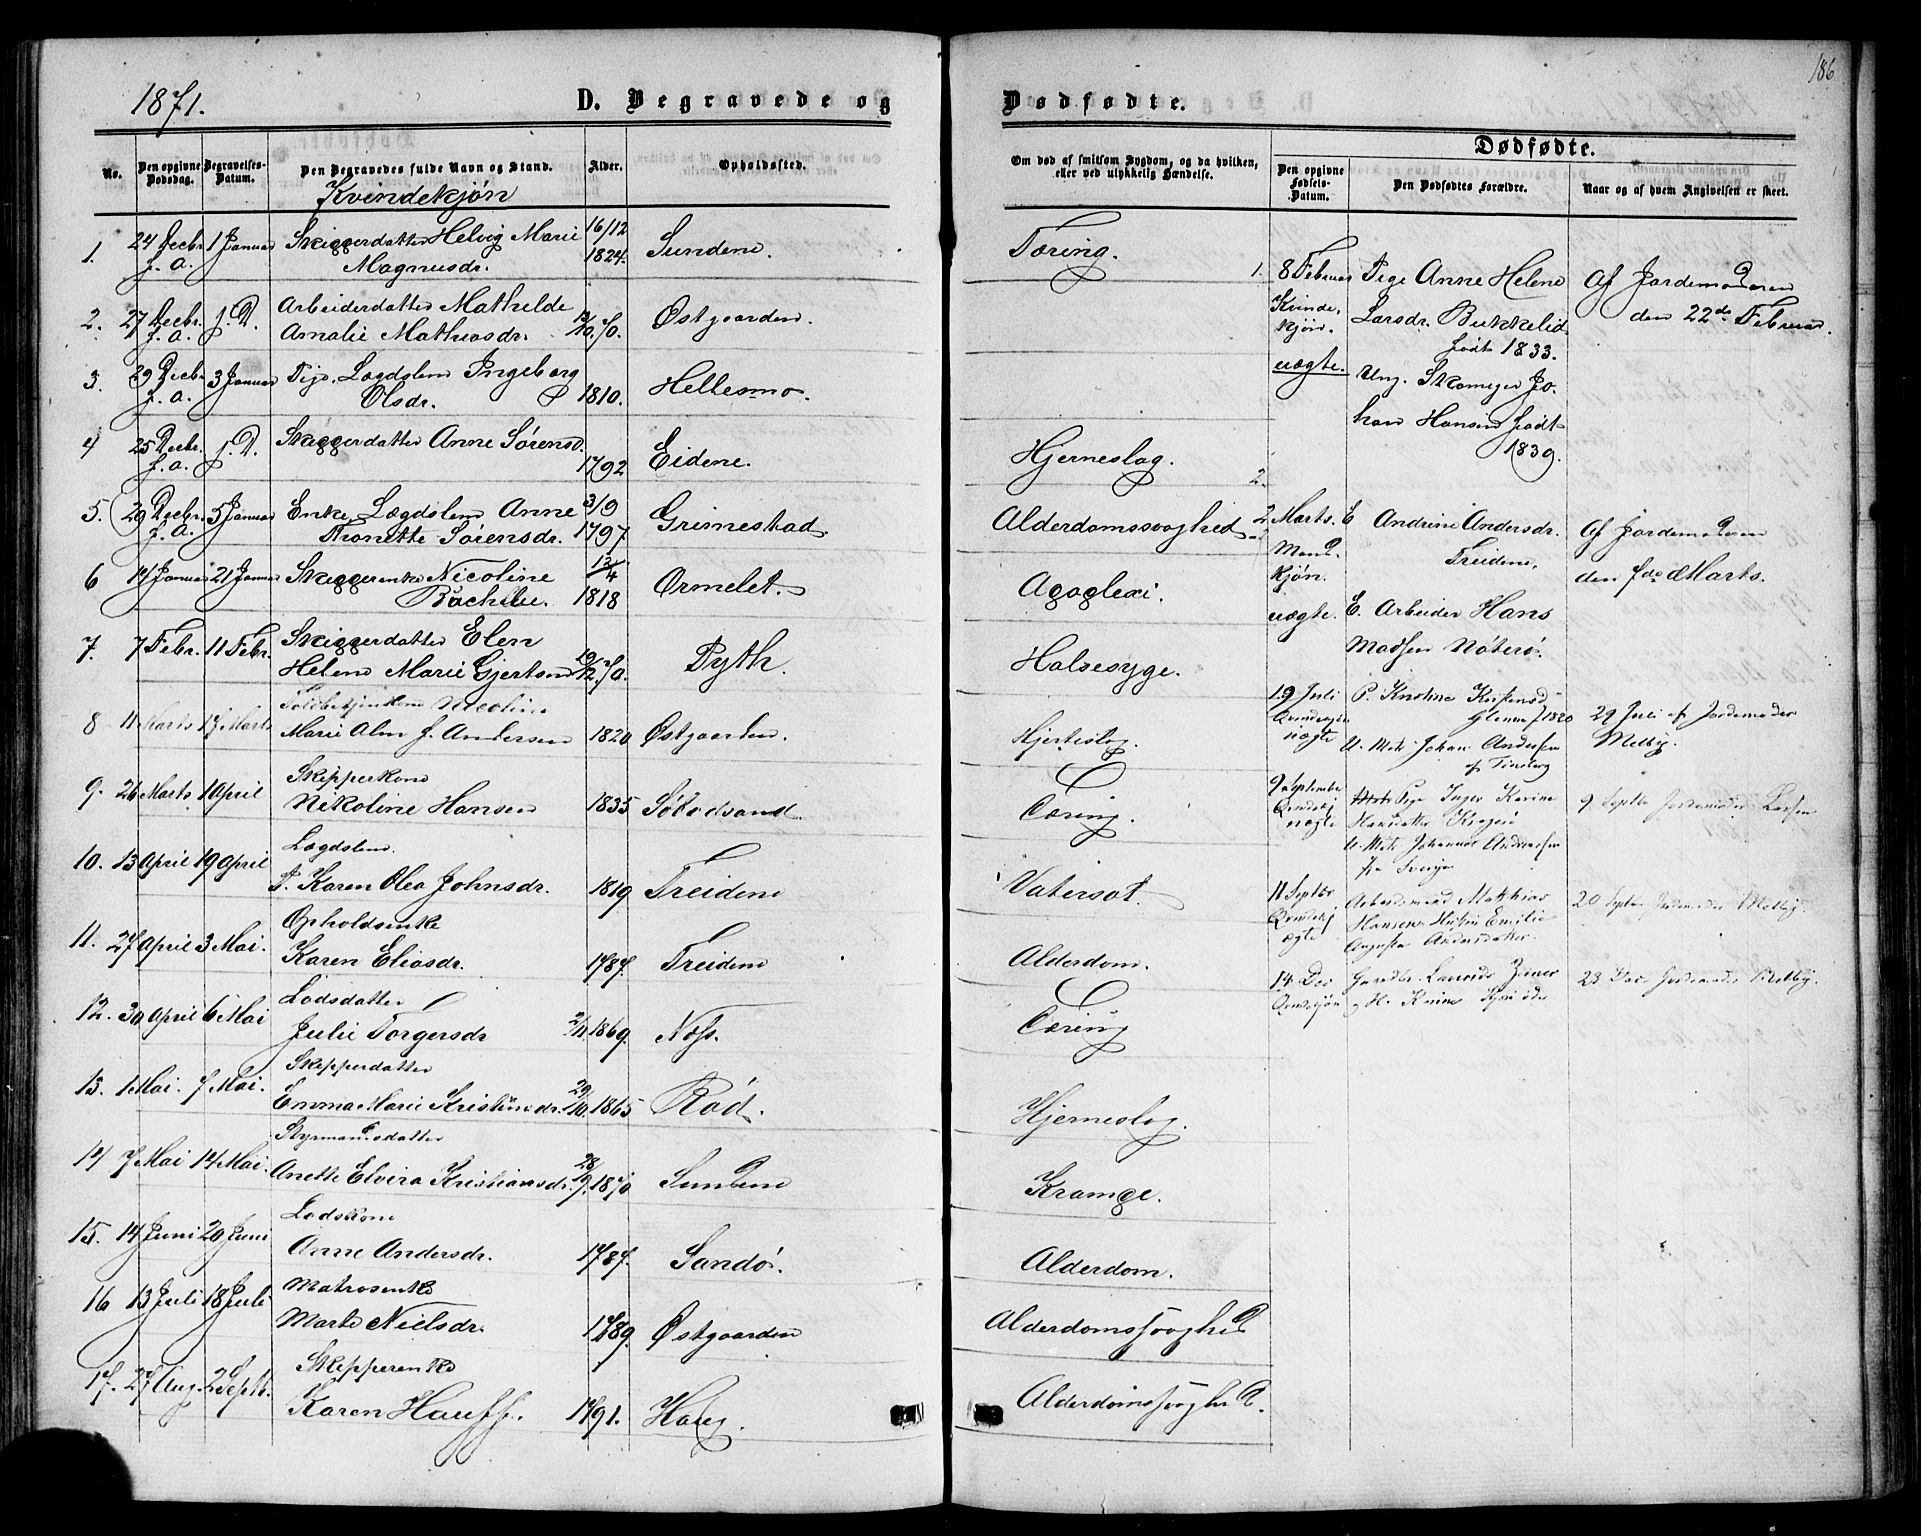 186
1871.
D. Begravede og
Dødfødte.
No.
Den opgivne Dødsdag.
Begravelses-Datum.
Den Begravedes fulde Navn og Stand.
Kvindekjøn
Alder.
Opholdssted.
Om død af smitsom Sygdom, og da hvilken,
eller ved ulykkelig Hændelse.
Dødfødte.
Den opgivne Fødsels-Datum.
Den Dødfødtes Forældre.
Naar og af hvem Angivelsen er skeet.
1. 24 Decbr. f. a. 1 Januar Skiggerdatter Helvig Marie 16/12 Sundene. Tæring.
Magnusdr. 1824.
2. 27 Decbr. f. a. j. D. Arbeiderdatter Mathilde Østgaarden.
Amalie Mathiasdr. 70.
3. 29 Decbr. f. a. 3 Januar Pige, Lægdslem Ingeborg Hellesmo.
Olsdr. 1810.
4 25 Decbr. f. a. j. D. Skiggerdatter Anne Sørensd. 1792 Eidene. Hjerneslag.
5. 29 Decbr. f. a. 5 Januar Enke, Lægdslem Anne 3/9 Grimestad Alderdomssvaghed
Tronette Sørensdr. 1797
6 14 Januar 21 Januar Skiggerenke Nicoline 13/4 Ormelet. Apoplexi.
1818
7. 7 Febr. 11 Febr. Skiggerdatter Elen 19/12 70. Pyth. Halsesyge.
Helene Marie Gjertsen
8 11 Marts 17 Marts Nicoline
Marie Alm f. Andersen 1820 Østgaarden. Hjerteslag.
9. 26 Marts 1 April Skipperkone
Nikoline Hansen 1835 Tæring.
10. 13 April 19 April Lægdslem.
P. Karen Olea Johnsdr. 1819 Treidene Vatersot.
11. 27 April 3 Mai. Opholdsenke
Karen Eliasdr. 1787. Treidene Alderdom.
12. 30 April 6 Mai Lodsdatter
Julie Torgersdr 2/11 1869. Næss. Tæring
13. 1 Mai. 7 Mai. Skipperdatter
Emma Marie Kristinedr. 29/10. 1865 Rød. Hjerneslag.
14 7 Mai 14 Mai. Styrmandsdatter
Anette Elvira Kristiansdr. 28/9. 1870 Sundene Krampe.
15. 14 Juni 20 Juni Lodskone
Anne Andersdr. 1787. Sandø. Alderdom.
16 13 Juli 18 Juli Matrosenke
Marte Nielsdr. 1789. Østgaarden Alderdomssvaghed
17. 27 Aug. 2 Septb. Skipperenke
Karen Hauff. 1791. Haug. Alderdomssvaghed.
1. 8 Februar Pige Anne Helene Af Jordemoderen
Kvinde- Larsdr. Bukkelid den 22de Februar.
kjøn. født 1833.
uægte. Ung. Skomager Jo-
han Hansen født
1839.
2. 2 Marts. E Andrine Andersdr. Af Jordemoderen
Mand- Treidene. den Marts.
kjøn.
uægte. E. Arbeider Hans
Madsen Nøterø.
19 Juli P. 29 Juli af Jordemoder
Qvindekjøn Glenne f 1820 Melbÿ.
uægte U. Matr. Johan Andersen
af Tønsberg
9 September Pige Inger Karine 9 Septbr Jordemoder Larsen
Qvindekj
uægte U. Matr. Johannes Andreassen
fra Sverige
11 Septbr Arbeidsmand Mathias 20 Septbr Jordemoder Melbÿ.
Qvindekj Hansen Hustru Emilie
ægte Augusta Andersdatter.
14 Dec 23 Dec Jordemoder Melbÿ.
Qvindekjøn